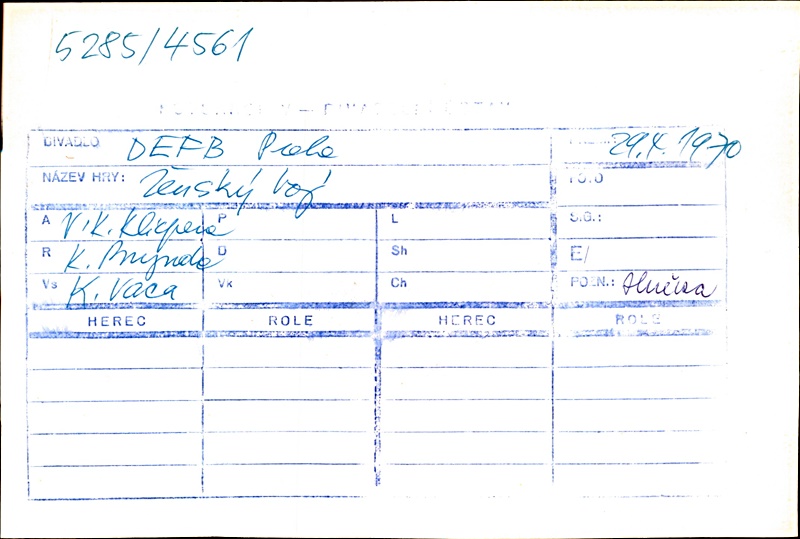 5285/4561
DIVADLO DEFB Praha 29.4.1970
NÁZEV HRY: Ženský boj
A V.K. Klicpera P L S.G.:
R K. Brynda D Sh E/
Vs K. Vaca Vk Ch POZN.:
HEREC ROLE HEREC ROLE